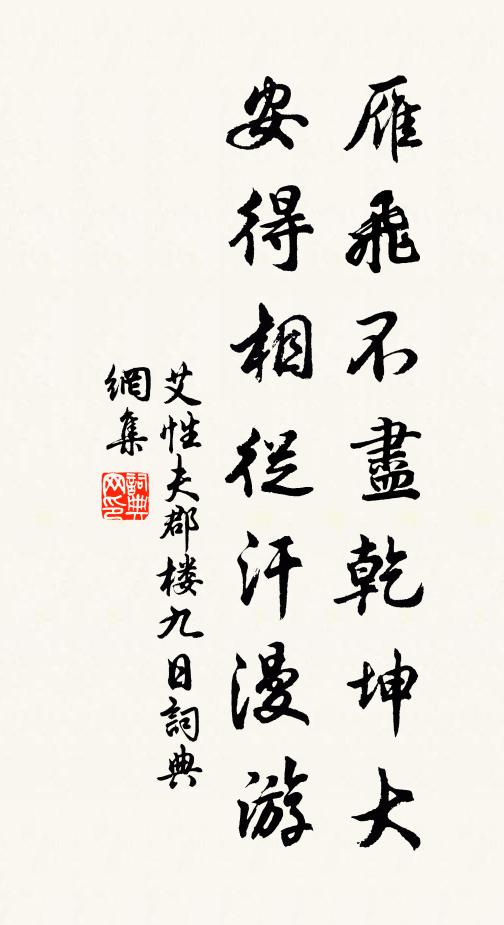 雁飛不盡乾坤大
安得相從汗漫游
艾性夫郡楼九日詞典
網集
詞典
网印